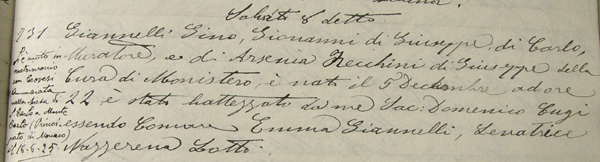 Sabato 8 detto
731 Giannelli Gino, Giovanni di Giuseppe, di Carlo,
Muratore, e di Arsenia Zecchini di Giuseppe della
Cura di Monistero, è nato il 5 Decembre ad ore
22, è stato battezzato da me Sac. Domenico Tugi
essendo Comare Emma Giannelli, Levatrice
Nazzerena Lotti.
Si è unito in
matrimonio
con
nella chiesa di
S. Carlo a Monte
Carlo (Princi-
pato di Monaco)
il 18-6-25